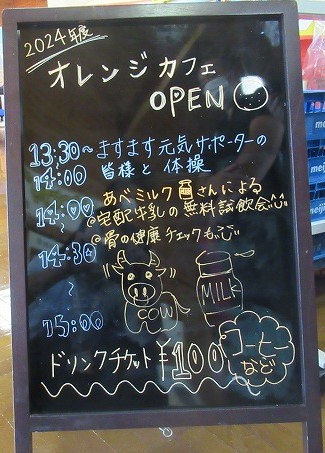 2024年度
オレンジカフェ
OPEN
13:30～ますます元気サポーターの
14:00 皆様と 体操
あべミルクさんによる
14:00 @宅配牛乳の無料試飲会
@骨の健康チェックも
14:30
～
15:00
COW
MILK
ドリンクチケット ¥100
コーヒー
など
meiji
meiji